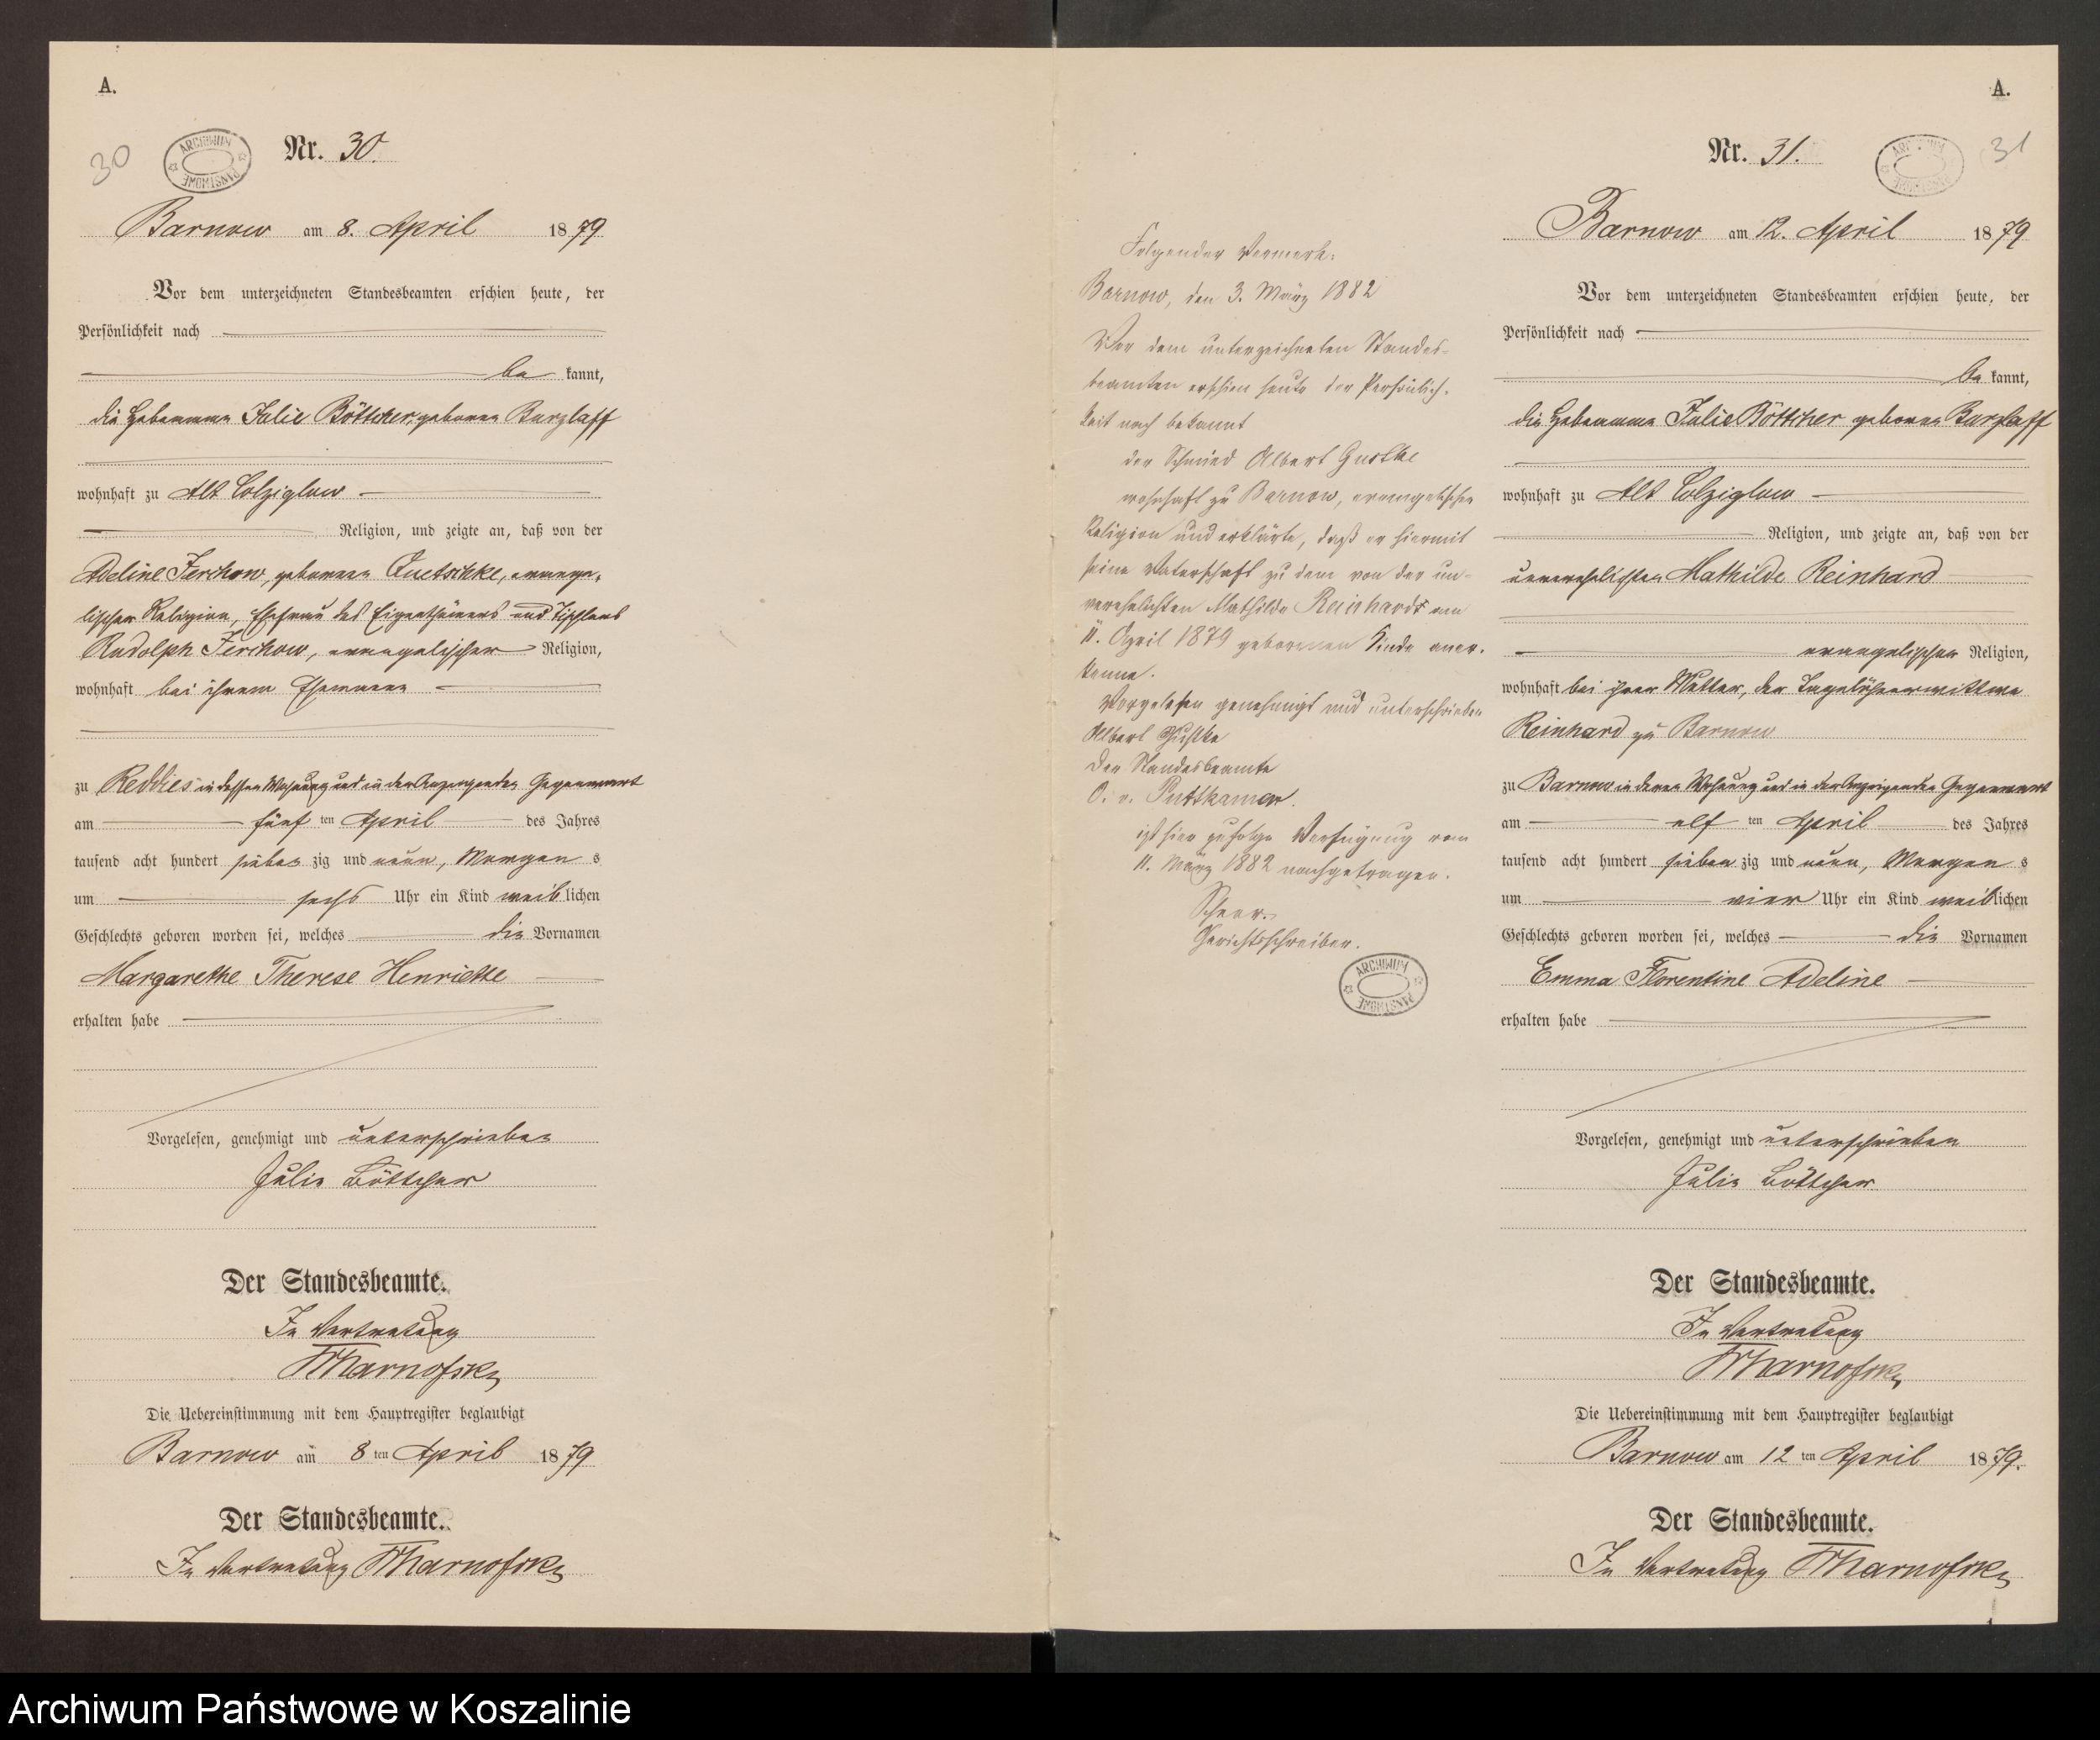 A.
30
ARCHIWUM PAŃSTWOWE
Nr. 30.
Barnow am 8. April 1879
Vor dem unterzeichneten Standesbeamten erschien heute, der
Persönlichkeit nach
be kannt,
die Hebamme Julie Böttcher, geborene Burzlaff
wohnhaft zu Alt Colziglow
Religion, und zeigte an, daß von der
Adeline Jerchow, geborenen Quetschke, evange-
lischer Religion, Ehefrau des Eigenthümers und Tischlers
Rudolph Jerchow, evangelischer Religion,
wohnhaft bei ihrem Ehemanne
zu Reddies in dessen Wohnung und in der Anzeigenden Gegenwart
am fünf ten April des Jahres
tausend acht hundert sieben zig und neun, Morgen s
um sechs Uhr ein Kind weib lichen
Geschlechts geboren worden sei, welches die Vornamen
Margarethe Therese Henriette
erhalten habe
Vorgelesen, genehmigt und unterschrieben
Julie Böttcher
Der Standesbeamte.
In Vertretung
Die Uebereinstimmung mit dem Hauptregister beglaubigt
Barnow am 8 ten April 1879
Der Standesbeamte.
In Vertretung
Folgender Vermerk:
Barnow, den 3. März 1882
Vor dem unterzeichneten Standes-
beamten erschien heute der Persönlich-
keit nach bekannt
der Schmied Albert Gustke
wohnhaft zu Barnow, evangelischer
Religion und erklärte, daß er hiermit
seine Vaterschaft zu dem von der un-
verehelichten Mathilde Reinhardt am
11. April 1879 geborenen Kinde aner-
kenne.
Vorgelesen genehmigt und unterschrieben
Albert Gustke
Der Standesbeamte
O. v. Puttkamer.
ist hier zufolge Verfügung vom
11. März 1882 nachgetragen.
Gerichtsschreiber.
ARCHIWUM PAŃSTWOWE
A.
Nr. 31.
ARCHIWUM PAŃSTWOWE
31
Barnow am 12. April 1879
Vor dem unterzeichneten Standesbeamten erschien heute, der
Persönlichkeit nach
be kannt,
die Hebamme Julie Böttcher geborene Burzlaff
wohnhaft zu Alt Colziglow
Religion, und zeigte an, daß von der
unverehelichten Mathilde Reinhard
evangelischer Religion,
wohnhaft bei ihrer Mutter, der Tagelöhnerwittwe
Reinhard zu Barnow
zu Barnow in deren Wohnung und in der Anzeigenden Gegenwart
am elf ten April des Jahres
tausend acht hundert sieben zig und neun, Morgen s
um vier Uhr ein Kind weib lichen
Geschlechts geboren worden sei, welches die Vornamen
Emma Florentine Adeline
erhalten habe
Vorgelesen, genehmigt und unterschrieben
Julie Böttcher
Der Standesbeamte.
In Vertretung
Die Uebereinstimmung mit dem Hauptregister beglaubigt
Barnow am 12 ten April 1879.
Der Standesbeamte.
In Vertretung
Archiwum Państwowe w Koszalinie